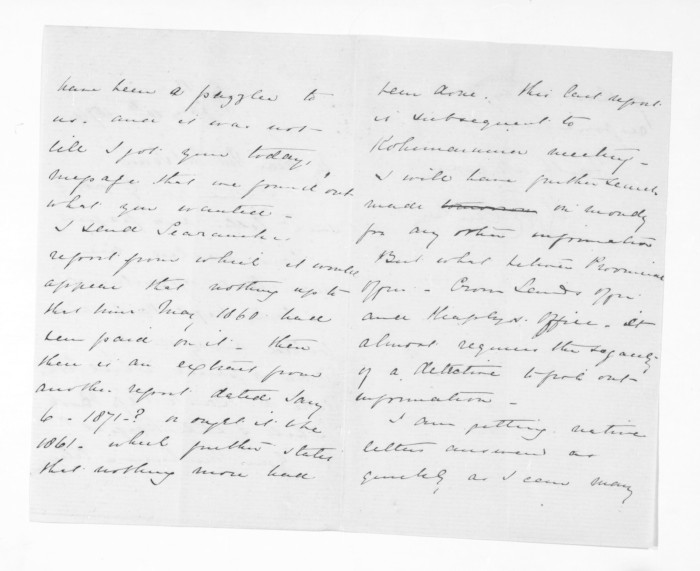 have been a puzzler to
us. and it was not
till I got your today's
message that we found out
what you wanted -
I send Searancke
report from which it would
appear that nothing up to
that time May 1860 had
been paid on it - then
there is an extract from
another report dated Jany
6 - 1871 - ? or ought it to be
1861 - which further states
that nothing more had
been done. This last report
is subsequent to
Kohimarama meeting -
I will have further search
made tomorrow on monday
for any other information
But what between Provincial
offices - Crown Lands offi
and Heaphy's office - it
almost requires the sagacity
of a detective to fish out
information -
I am getting native
letters answered as
quickly as I can many